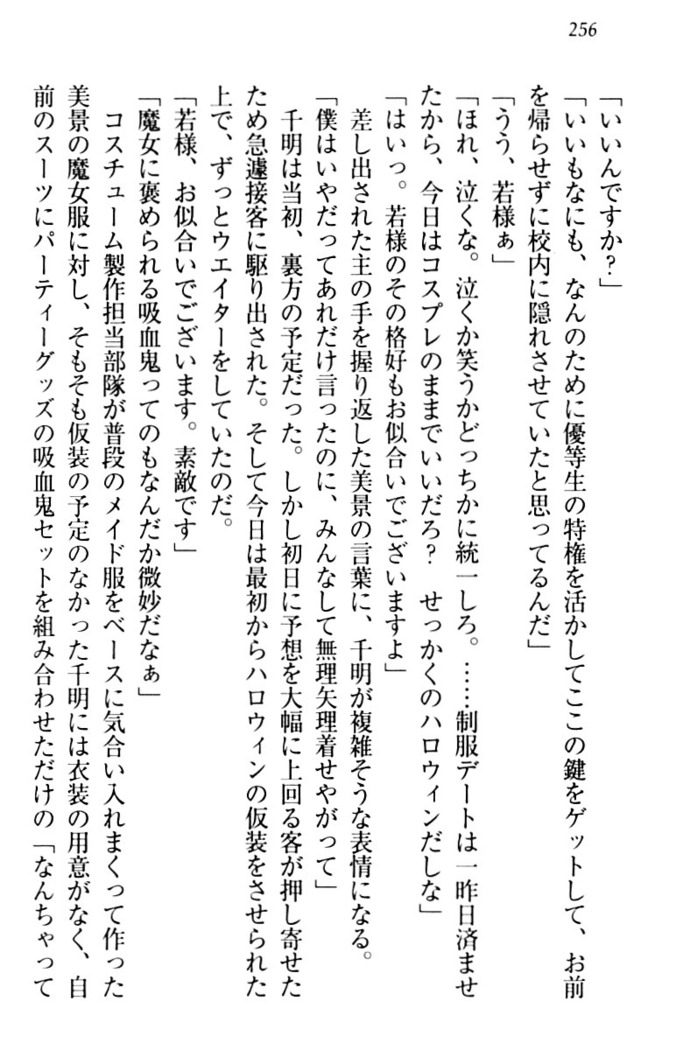 256
「いいんですか?」
「いいもなにも、なんのために優等生の特権を活かしてここの鍵をゲットして、お前
を帰らせずに校内に隠れさせていたと思ってるんだ」
「うう、若様ぁ」
「ほれ、泣くな。泣くか笑うかどっちかに統一しろ。……制服デートは一昨日済ませ
たから、今日はコスプレのままでいいだろ? せっかくのハロウィンだしな」
「はいっ。若様のその格好もお似合いでございますよ」
差し出された主の手を握り返した美景の言葉に、千明が複雑そうな表情になる。
「僕はいやだってあれだけ言ったのに、みんなして無理矢理着せやがって」
千明は当初、裏方の予定だった。しかし初日に予想を大幅に上回る客が押し寄せた
ため急遽接客に駆り出された。そして今日は最初からハロウィンの仮装をさせられた
上で、ずっとウエイターをしていたのだ。
「若様、お似合いでございます。素敵です」
「魔女に褒められる吸血鬼ってのもなんだか微妙だなぁ」
コスチューム製作担当部隊が普段のメイド服をベースに気合い入れまくって作った
美景の魔女服に対し、そもそも仮装の予定のなかった千明には衣装の用意がなく、自
前のスーツにパーティーグッズの吸血鬼セットを組み合わせただけの「なんちゃって